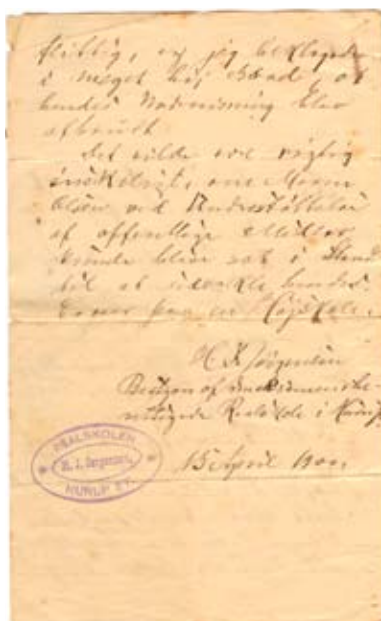 flittig, og jeg beklagede
i meget høj Grad, at
hendes Undervisning blev
afbrudt.
Det vilde være rigtig
ønskeligt, om Maren
Olsen ved Understøttelse
af offentlige Midler
kunde blive sat i Stand
til at udvikle hendes
paa en Højskole.
H. J. Jørgensen
Bestyrer af
Realskole i Hurup
15 April 1900.
REALSKOLEN
H. J. Jørgensen.
HURUP ST.